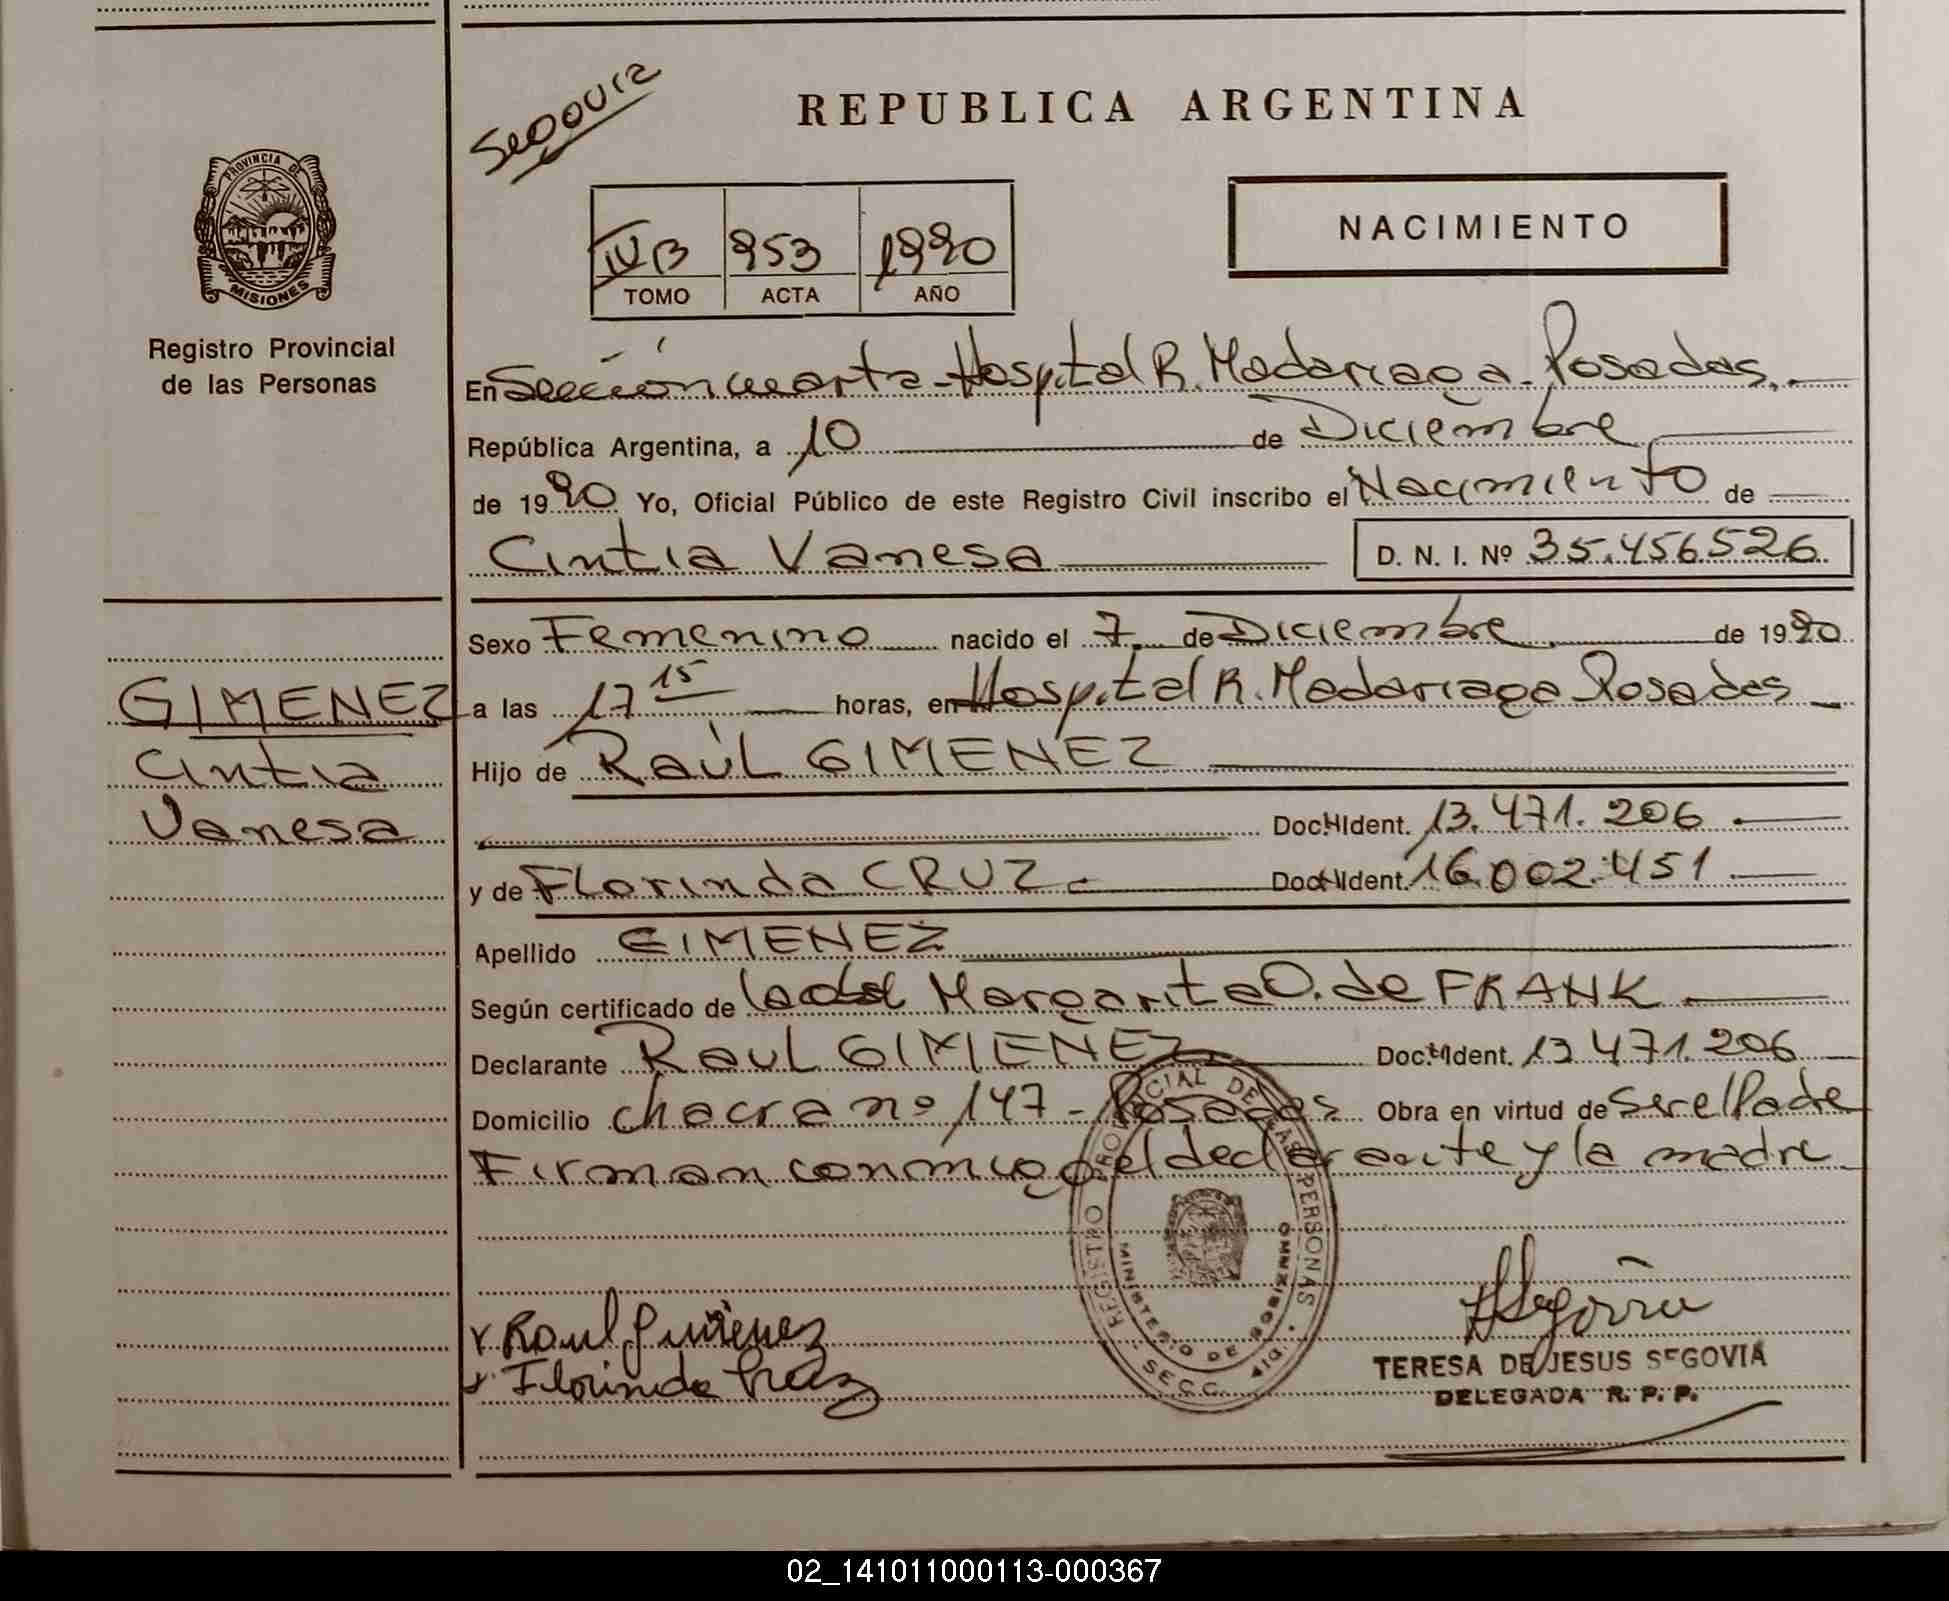 REPUBLICA ARGENTINA
PROVINCIA DE
MISIONES
Registro Provincial
de las Personas
NACIMIENTO
IV B 953 1990
TOMO ACTA AÑO
En Sección cuarta - Hospital R. Madariaga - Posadas.
República Argentina, a 10 de Diciembre
de 1990 Yo, Oficial Público de este Registro Civil inscribo el Nacimiento de
Cintia Vanesa D. N. I. Nº 35.456.526
Sexo Femenino nacido el 7 de Diciembre de 1990
GIMENEZ
Cintia
Vanesa
a las 17 15 horas, en Hospital R. Madariaga Posadas
Hijo de Raúl GIMENEZ
Doc. Ident. 13.471.206
y de Florinda CRUZ Doc. Ident. 16.002.451
Apellido GIMENEZ
Según certificado de Margarita O. de FRANK
Declarante Raul GIMENEZ Doc. Ident. 13.471.206
Domicilio chacra nº 147 - Posadas Obra en virtud de ser el Padre
Firman conmigo el declarante y la madre
REGISTRO PROVINCIAL DE LAS PERSONAS
MINISTERIO DE GOBIERNO
SECC.
x Raul Gimenez
x. Florinda Cruz
TERESA DE JESUS SEGOVIA
DELEGADA R. P. P.
02_141011000113-000367